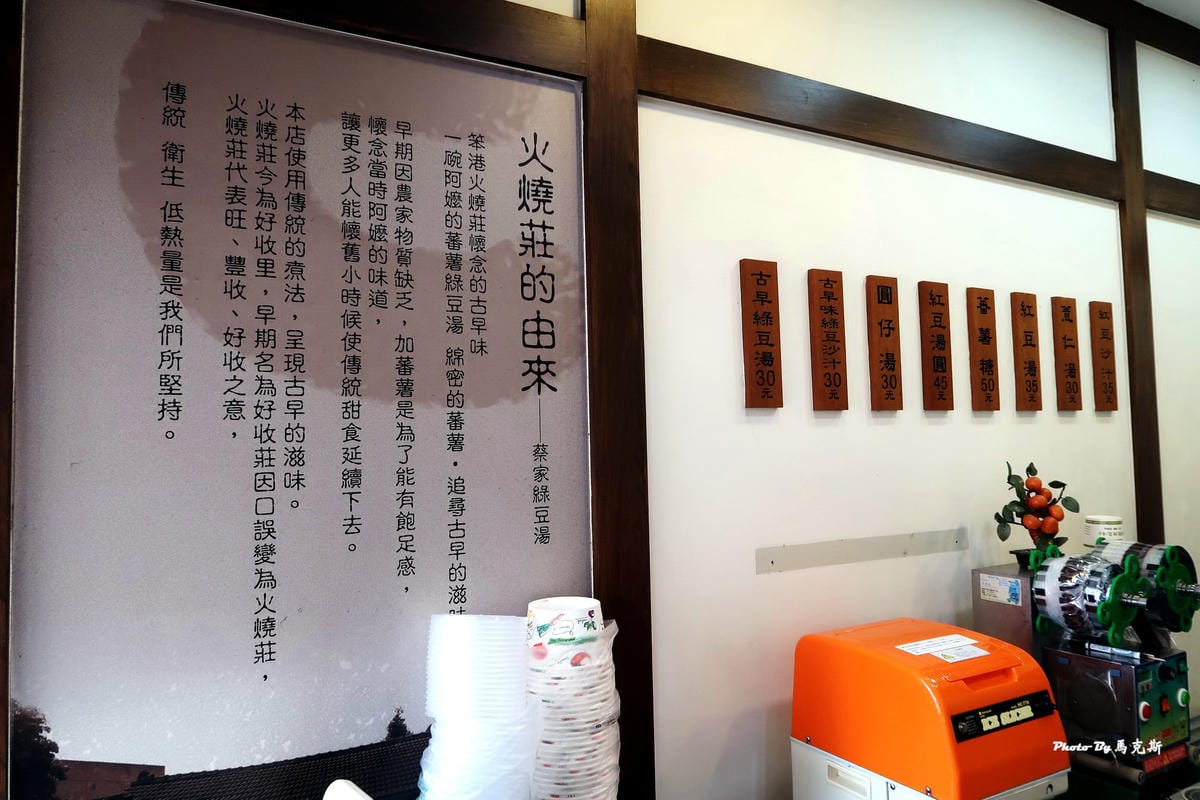 火燒莊的由來——蔡家綠豆湯
笨港火燒莊懷念的古早味
一碗阿嬤的蕃薯綠豆湯 綿密的蕃薯．追尋古早的滋味
早期因農家物質缺乏，加蕃薯是為了能有飽足感，
懷念當時阿嬤的味道，
讓更多人能懷舊小時候使傳統甜食延續下去。
本店使用傳統的煮法，呈現古早的滋味。
火燒莊今為好收里，早期名為好收莊因口誤變為火燒莊，
火燒莊代表旺、豐收、好收之意，
傳統 衛生 低熱量是我們所堅持。
古早綠豆湯30元
古早味綠豆沙汁30元
圓仔湯30元
紅豆湯圓45元
蕃薯糖50元
紅豆湯35元
薏仁湯30元
紅豆沙汁35元
ICE SLICER
Photo By 馬克斯